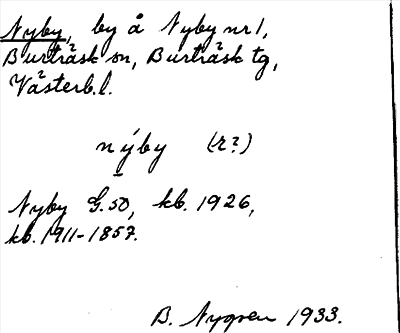 Nyby, by å Nyby nr 1,
Burträsk sn, Burträsk tg,
Västerb.l.
nýby (r?)
Nyby G.50, kb. 1926,
kb. 1911-1857.
B. Nygren 1933.